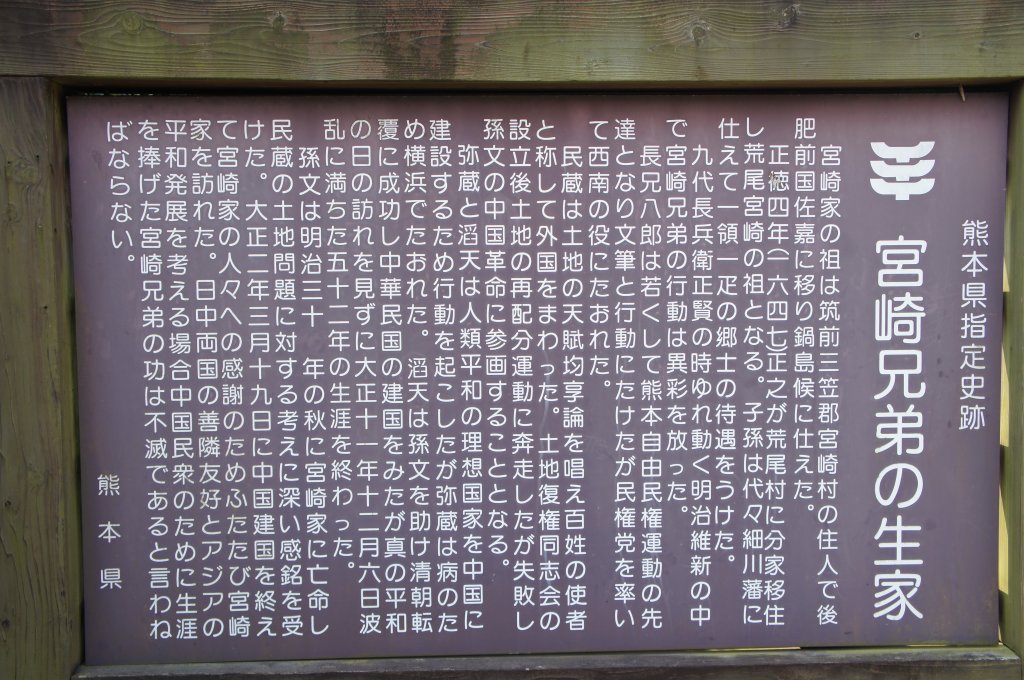 熊本県指定史跡
宮崎兄弟の生家
宮崎家の祖は筑前三笠郡宮崎村の住人で後
肥前国佐嘉に移り鍋島候に仕えた。
正徳四年(一六四七)正之が荒尾村に分家移住
し荒尾宮崎の祖となる。子孫は代々細川藩に
仕えて一領一疋の郷士の待遇をうけた。
九代長兵衛正賢の時ゆれ動く明治維新の中
で宮崎兄弟の行動は異彩を放った。
長兄八郎は若くして熊本自由民権運動の先
達となり文筆と行動にたけたが民権党を率い
て西南の役にたおれた。
民蔵は土地の天賦均享論を唱え百姓の使者
と称して外国をまわった。土地復権同志会の
設立後土地の再配分運動に奔走したが失敗し
孫文の中国革命に参画することとなる。
弥蔵と滔天は人類平和の理想国家を中国に
建設するため行動を起こしたが弥蔵は病のた
め横浜でたおれた。滔天は孫文を助け清朝転
覆に成功し中華民国の建国をみたが真の平和
の日の訪れを見ずに大正十一年十二月六日波
乱に満ちた五十二年の生涯を終わった。
孫文は明治三十 年の秋に宮崎家に亡命し
民蔵の土地問題に対する考えに深い感銘を受
けた。大正二年三月十九日に中国建国を終え
て宮崎家の人々への感謝のためふたたび宮崎
家を訪れた。日中両国の善隣友好とアジアの
平和発展を考える場合中国民衆のために生涯
を捧げた宮崎兄弟の功は不滅であると言わね
ばならない。
熊本県